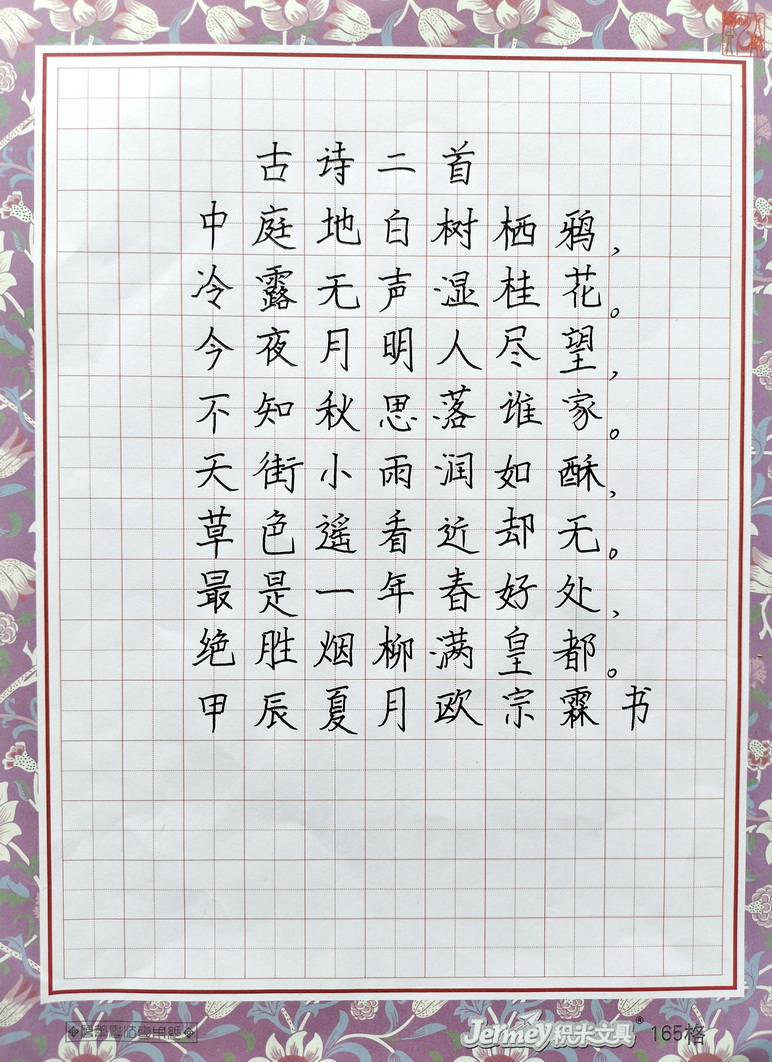 古诗二首
中庭地白树栖鸦，
冷露无声湿桂花。
今夜月明人尽望，
不知秋思落谁家。
天街小雨润如酥，
草色遥看近却无。
最是一年春好处，
绝胜烟柳满皇都。
甲辰夏月欧宗霖书
Jermey积米文具® 165格